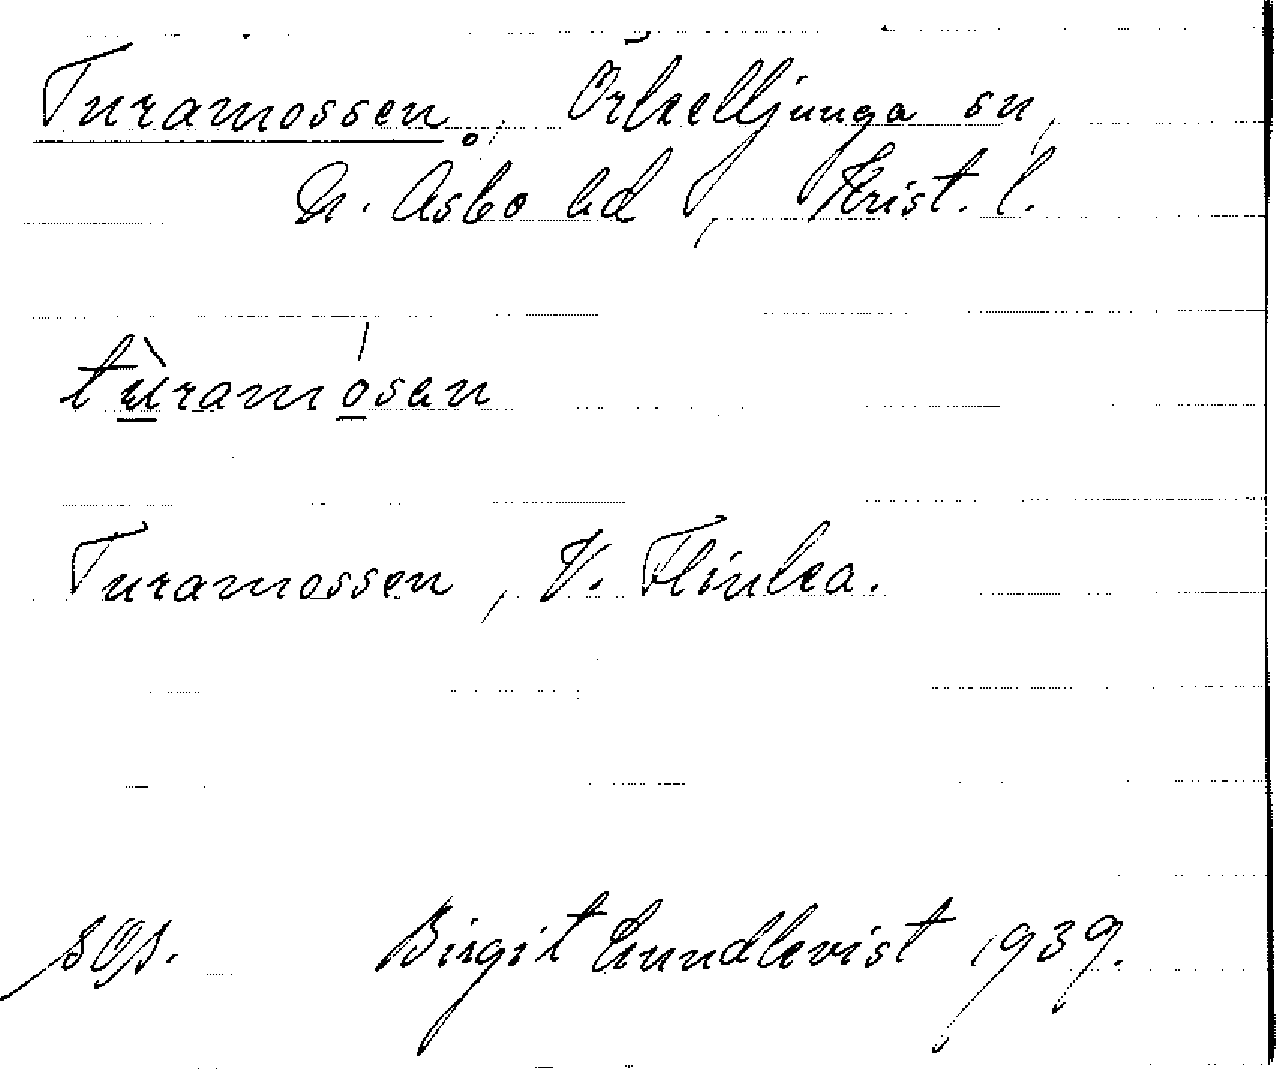 Turamossen. Örkelljunga sn,
N. Åsbo hd, Krist. l.
tùramósen
Turamossen, V. Flinka.
sgs. Birgit Lundkvist 1939.